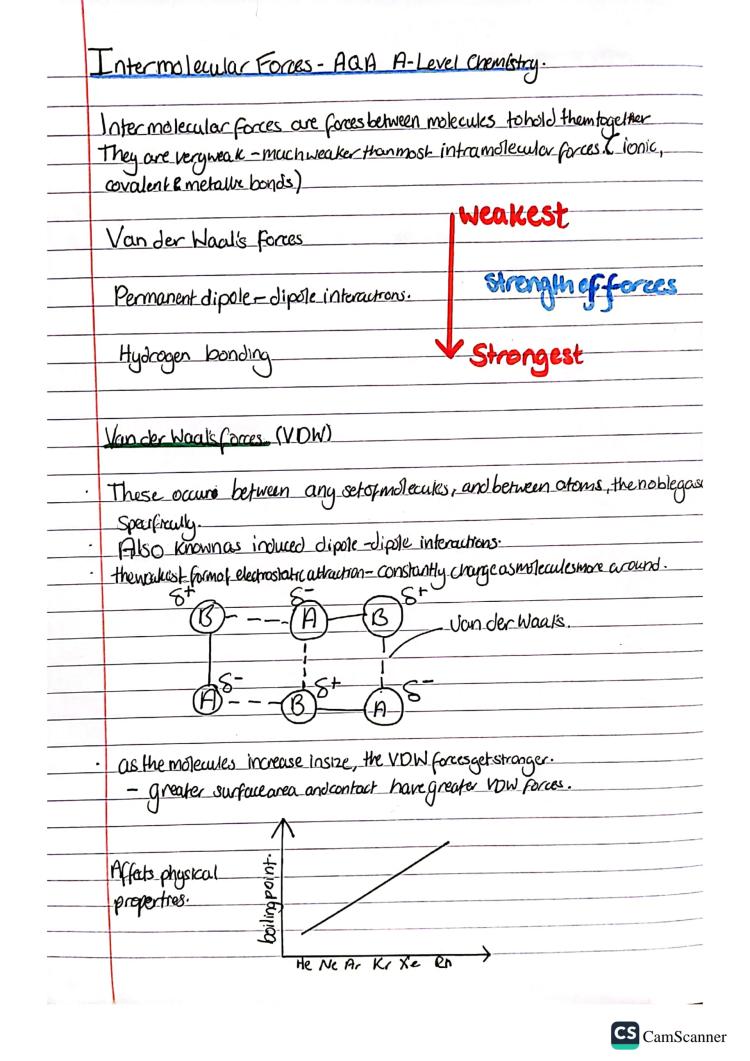 Intermolecular Forces - AQA A-Level Chemistry.
Intermolecular forces are forces between molecules to hold them together
They are very weak - much weaker than most intramolecular forces. ( ionic,
covalent & metallic bonds)
weakest
Van der Waal's forces
Strength of forces
Permanent dipole - dipole interactions.
Hydrogen bonding
Strongest
Van der Waal's forces (VDW)
· These occurs between any set of molecules, and between atoms, the noble gase
Specifically.
· Also known as induced dipole - dipole interactions.
· the weakest form of electrostatic attraction - constantly change as molecules move around.
δ+ δ- δ+
B A B
Van der Waal's.
δ- δ+ δ-
A B A
· as the molecules increase in size, the VDW forces get stronger.
- greater surface area and contact have greater VDW forces.
Affects physical
properties.
boiling point.
He Ne Ar Kr Xe Rn
CS CamScanner